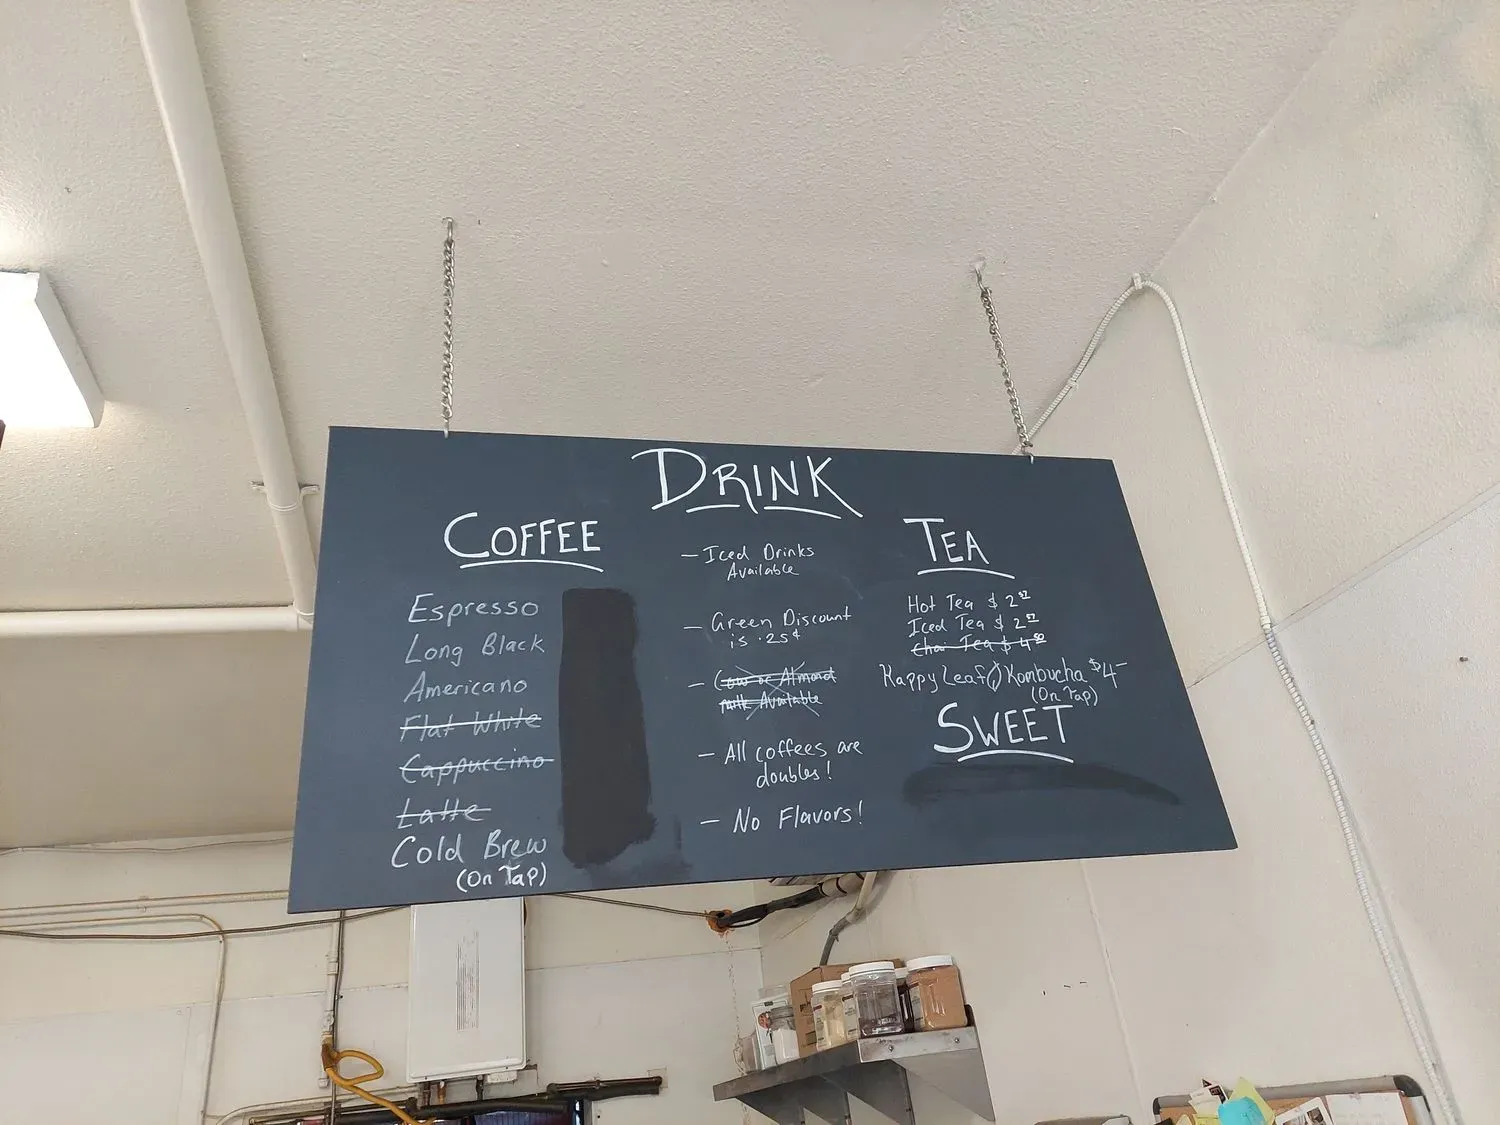 DRINK
COFFEE
Espresso
Long Black
Americano
Flat White
Cappuccino
Latte
Cold Brew
(On Tap)
— Iced Drinks
Available
— Green Discount
is .25¢
— Cow or Almond
milk Available
— All coffees are
doubles!
— No Flavors!
TEA
Hot Tea $ 2
Iced Tea $ 2
Chai Tea $ 4
Happy Leaf Kombucha $4-
(On Tap)
SWEET